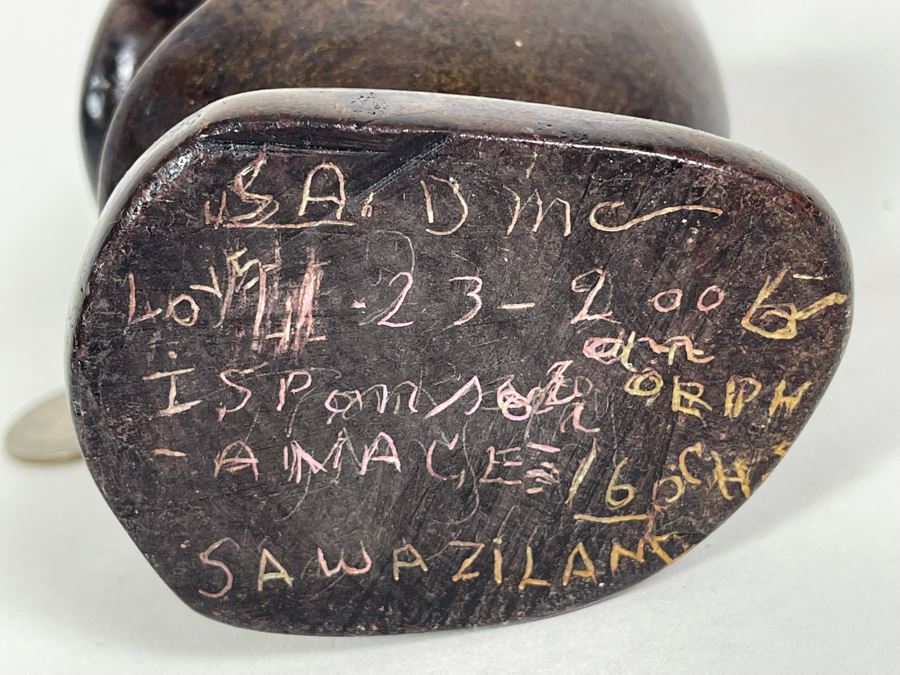 S A. D mc
LOVE 23 - 2005
I SPonsor an ORPH
- ANAGE 160 CH
SAWAZILAND